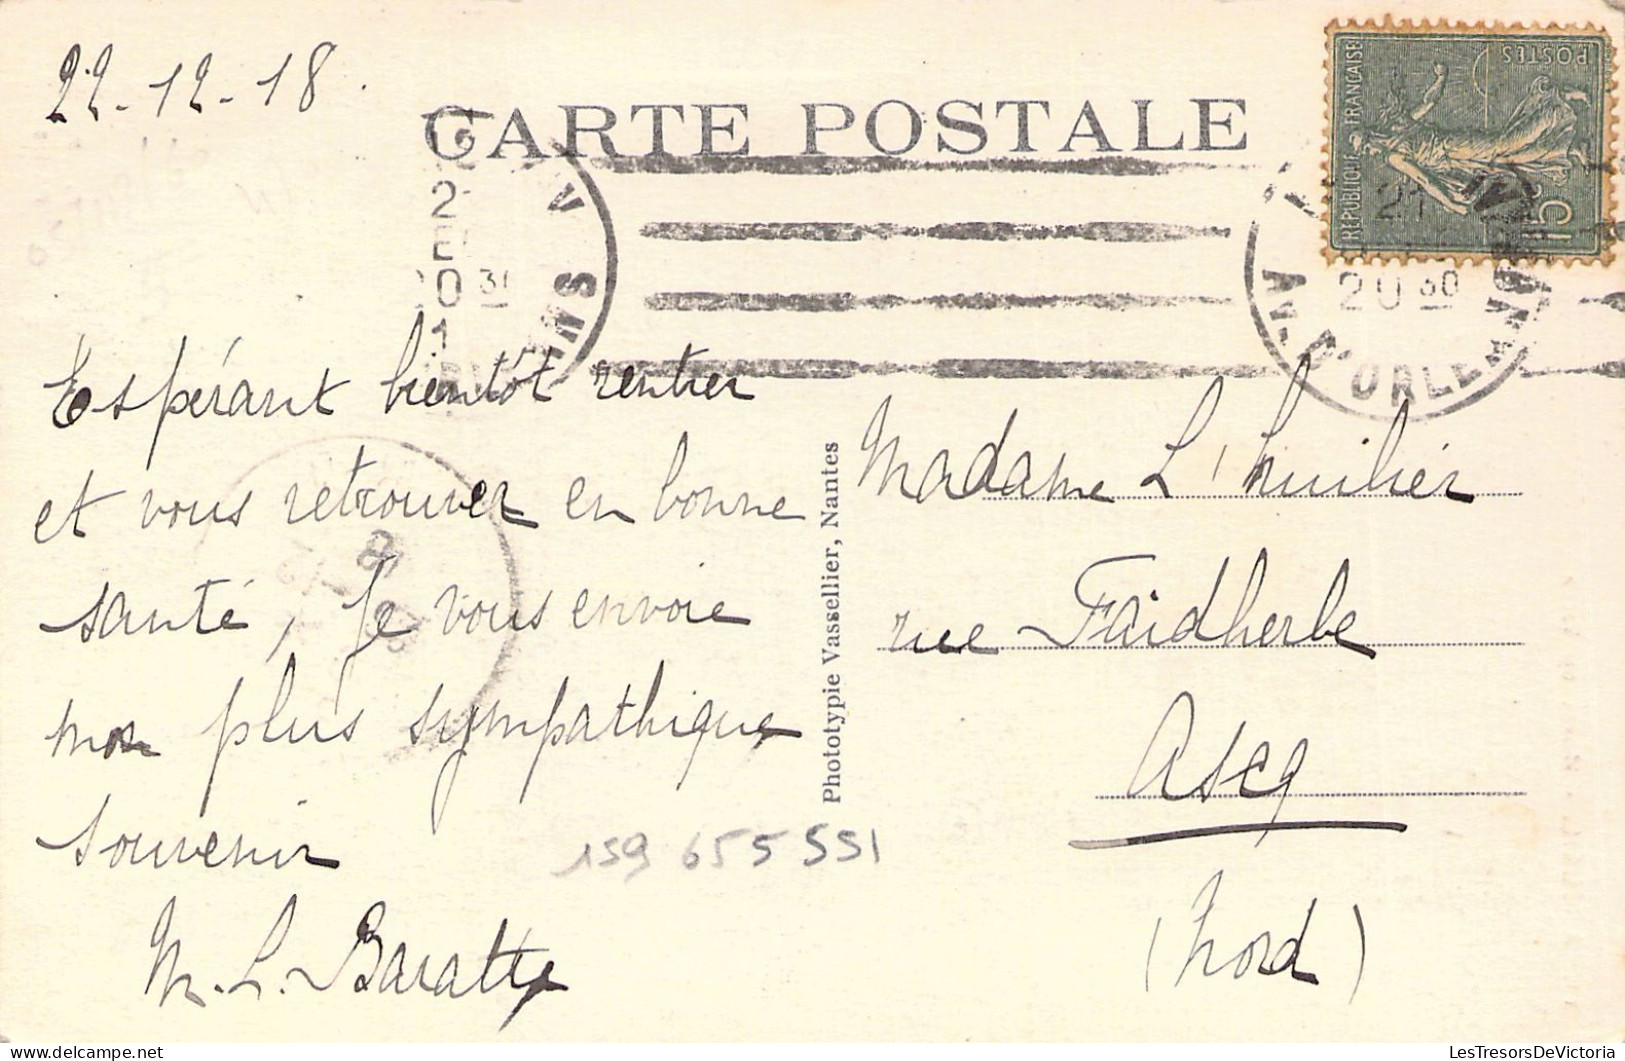 22-12-18.
CARTE POSTALE
RÉPUBLIQUE FRANÇAISE
POSTES
20 30
AV. D'ORLEANS
Espérant bientôt rentrer
et vous retrouver en bonne
santé, Je vous envoie
mon plus sympathique
souvenir
M. L. Baratte
Phototypie Vassellier, Nantes
Madame L'huilier
rue Faidherbe
Ascq
(Nord)
159 655 551
LesTresorsDeVictoria.com